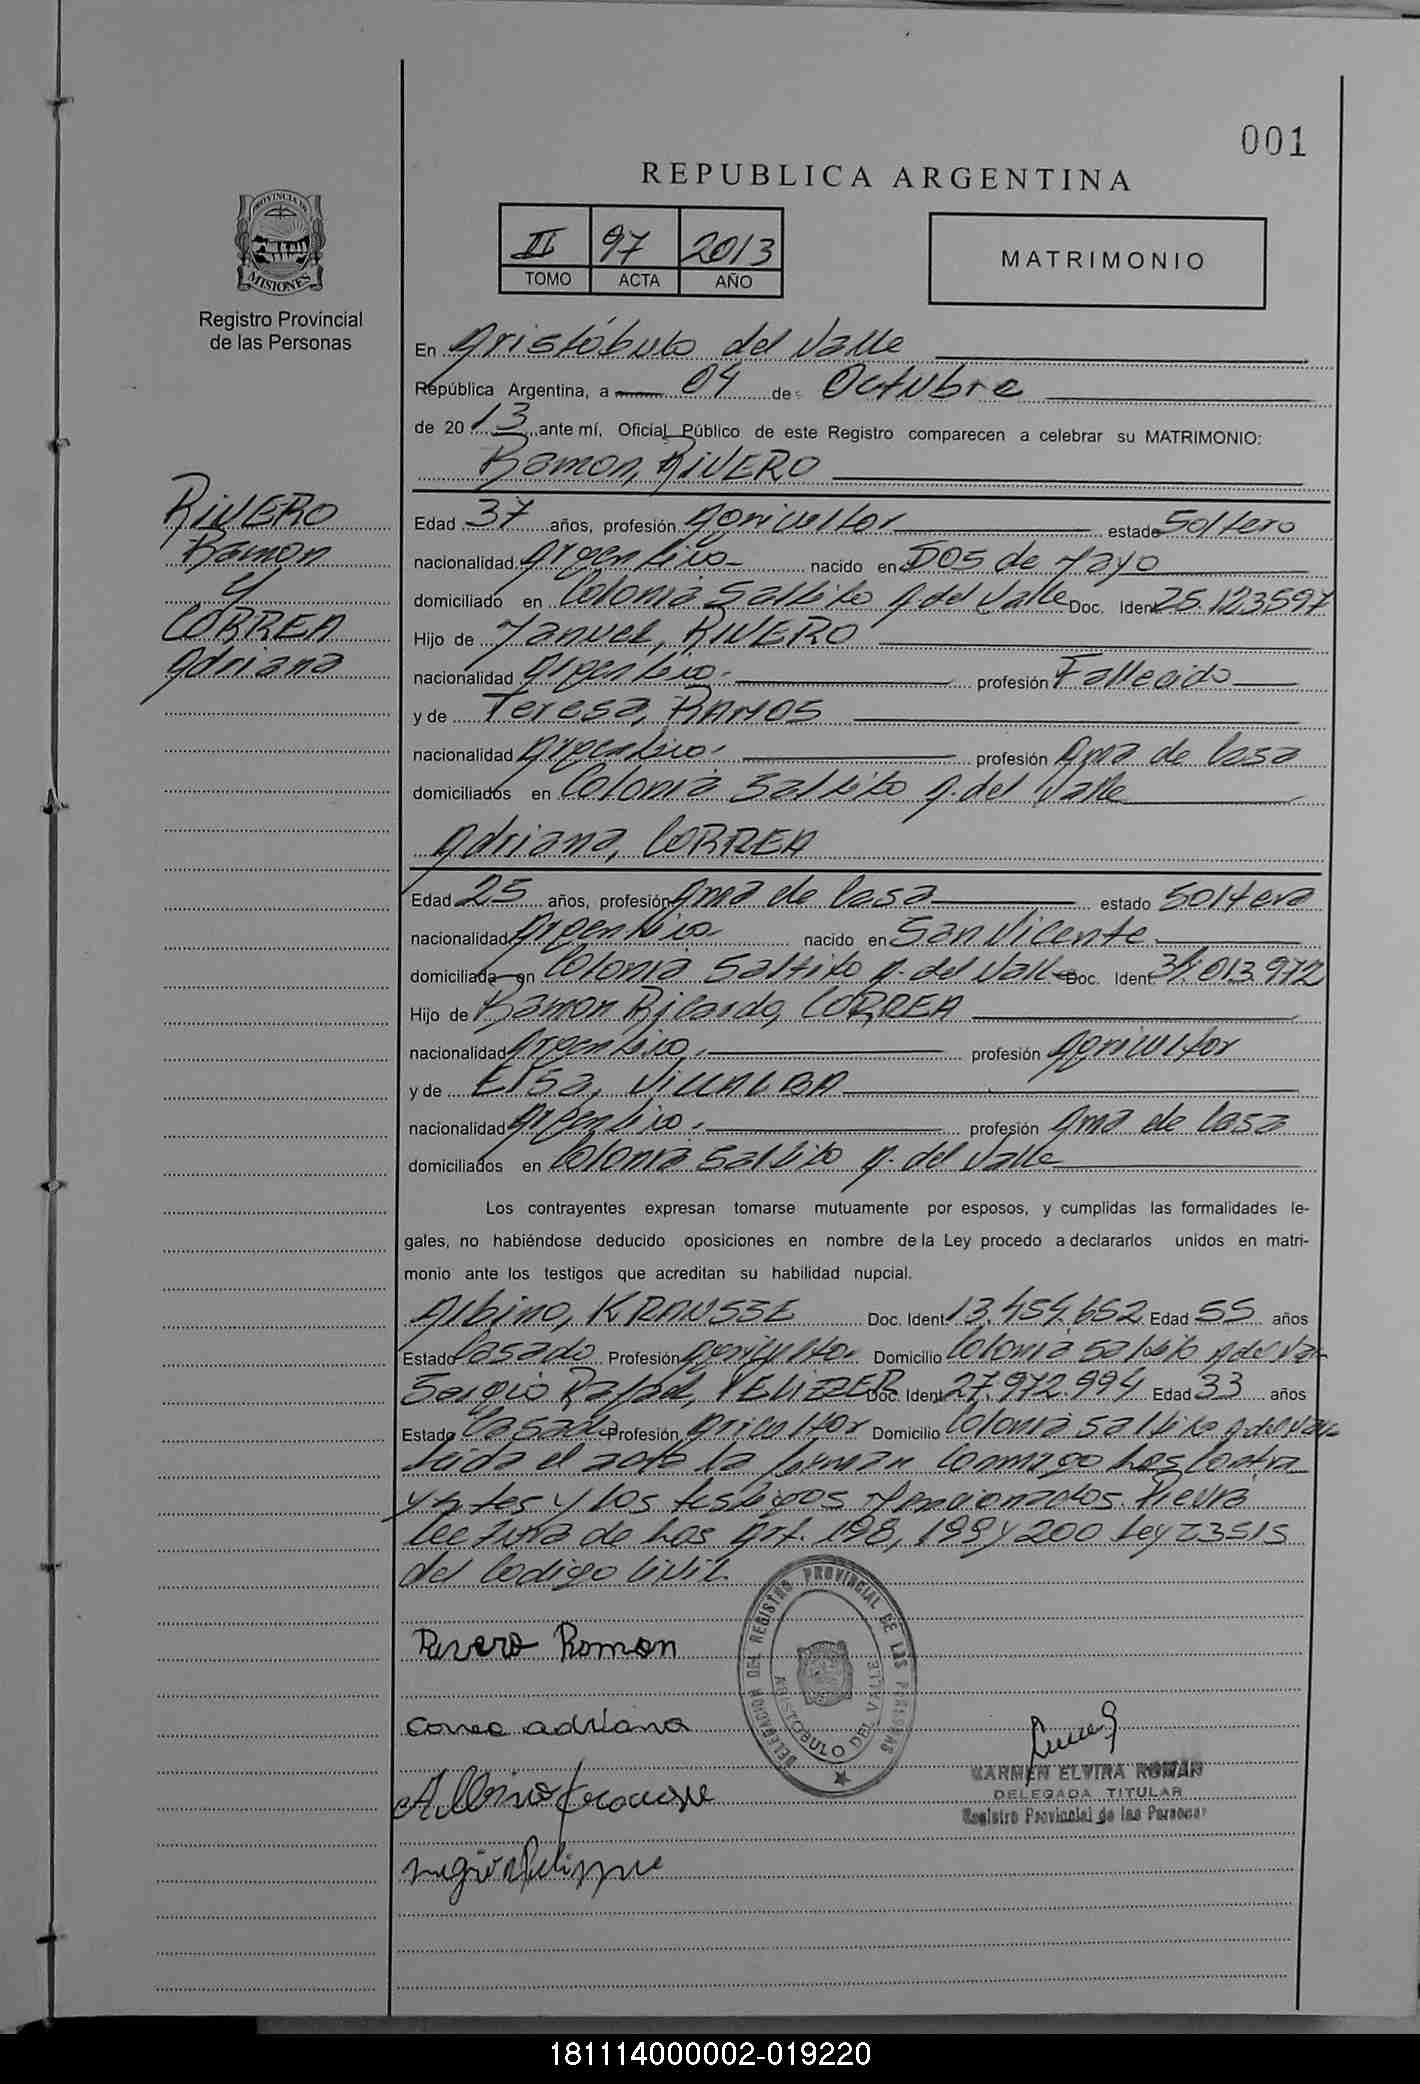 001
REPUBLICA ARGENTINA
PROVINCIA DE
MISIONES
Registro Provincial
de las Personas
II 97 2013
TOMO ACTA AÑO
MATRIMONIO
En Aristóbulo del Valle
República Argentina, a 04 de Octubre
de 2013 ante mí, Oficial Público de este Registro comparecen a celebrar su MATRIMONIO:
Ramon, RIVERO
RIVERO
Ramon
y
CORREA
Adriana
Edad 37 años, profesión Agricultor estado Soltero
nacionalidad Argentino nacido en Dos de Mayo
domiciliado en Colonia Saltito A. del Valle Doc. Ident 25.123.597
Hijo de Manuel, RIVERO
nacionalidad Argentino profesión Fallecido
y de Teresa, RAMOS
nacionalidad Argentino profesión Ama de Casa
domiciliados en Colonia Saltito A. del Valle
Adriana, CORREA
Edad 25 años, profesión Ama de Casa estado Soltera
nacionalidad Argentino nacido en San Vicente
domiciliada en Colonia Saltito A. del Valle Doc. Ident. 34.013.972
Hijo de Ramon Ricardo, CORREA
nacionalidad Argentino profesión Agricultor
y de Elsa, VILLALBA
nacionalidad Argentino profesión Ama de Casa
domiciliados en Colonia Saltito A. del Valle
Los contrayentes expresan tomarse mutuamente por esposos, y cumplidas las formalidades le-
gales, no habiéndose deducido oposiciones en nombre de la Ley procedo a declararlos unidos en matri-
monio ante los testigos que acreditan su habilidad nupcial.
Albino, KRAUSSE Doc. Ident 13.454.652 Edad 55 años
Estado Casado Profesión Agricultor Domicilio Colonia Saltito A del Va
Sergio Rafael, Doc. Ident. 27.972.994 Edad 33 años
Estado Casado Profesión Agricultor Domicilio Colonia Saltito A. del Valle
Leida el acta la firman Conmigo Los Contra
yentes y los testigos Mencionados. Previa
lectura de Los Art. 198, 199 y 200 Ley 23515
del Codigo Civil.
Rivero Ramon
Correa adriana
DELEGACION DEL REGISTRO PROVINCIAL DE LAS PERSONAS
ARISTOBULO DEL VALLE
CARMEN ELVIRA ROMAN
DELEGADA TITULAR
Registro Provincial de las Personas
181114000002-019220